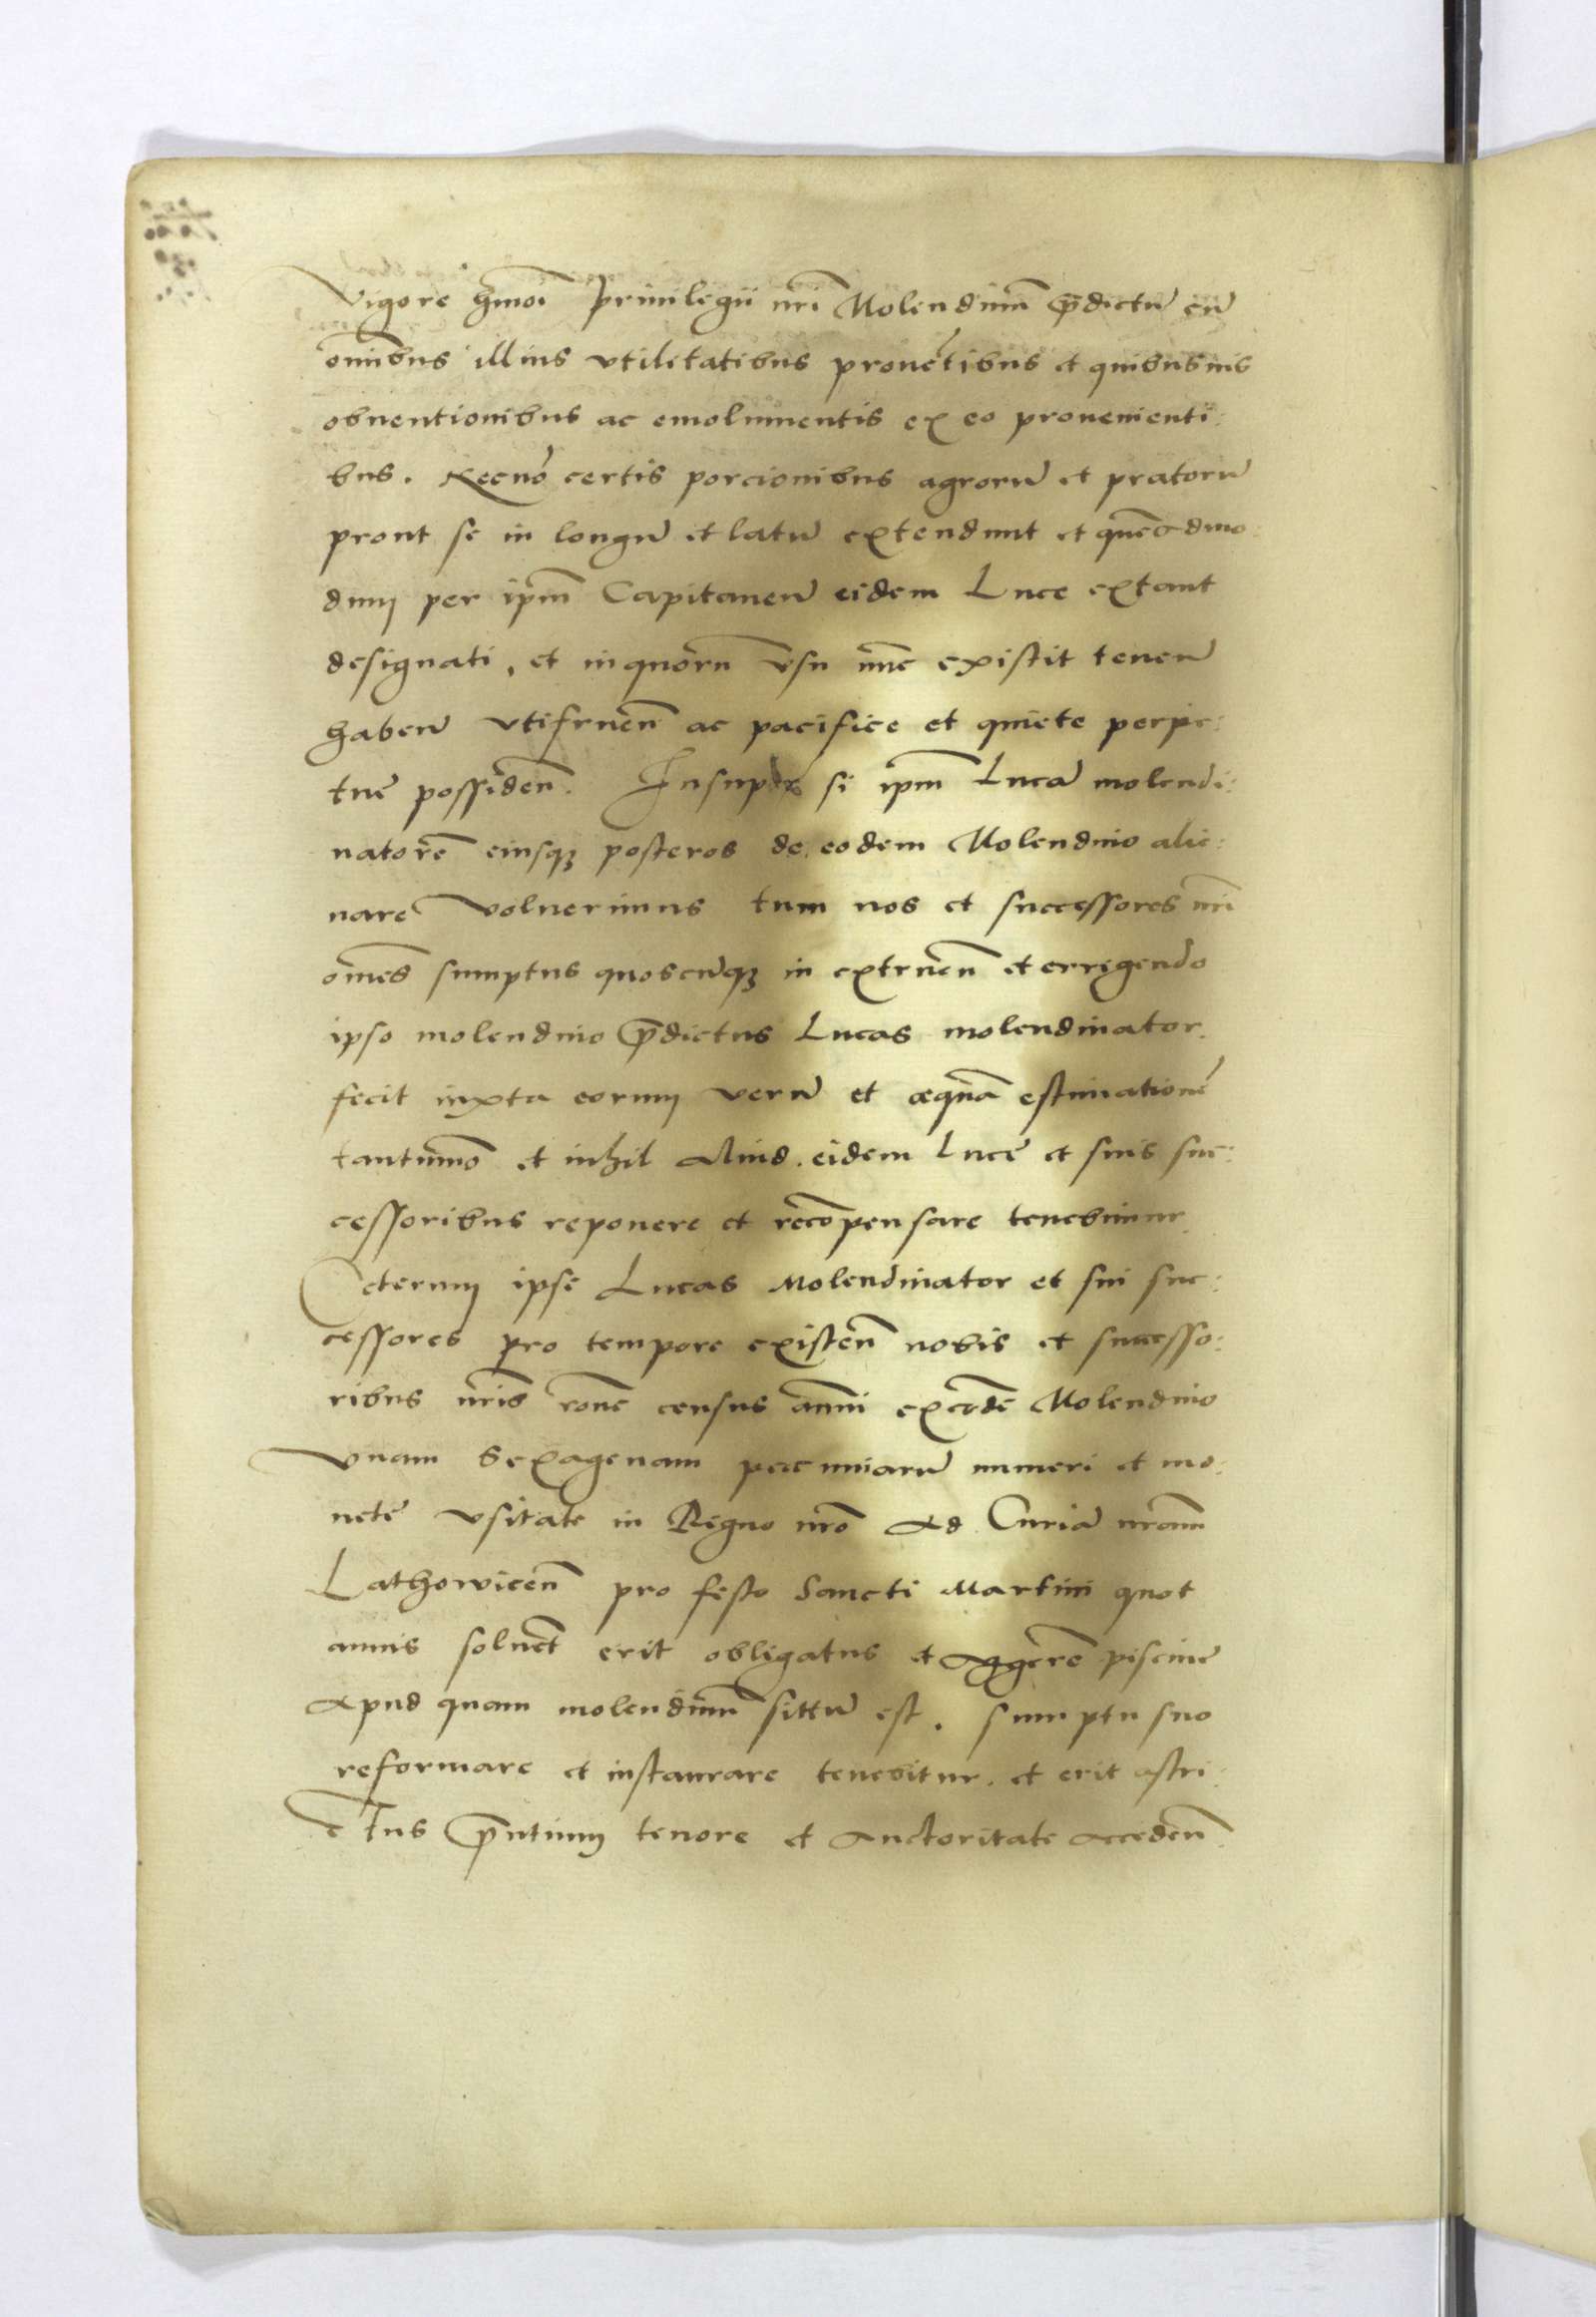 Vigore hm̃oi Priuilegii nr̃i Molendinũ p̃dictũ cũ
om̃ibus illius vtilitatibus prouẽtibus et quibusuis
obuentionibus ac emolumentis ex eo prouenienti:
bus. Necnõ certis porcionibus agrorũ et pratorũ
prout se in longũ et latũ extendunt et quẽadmo:
dum per ipm̃ Capitaneũ eidem Luce extant
designati, et in quorũ vsu nũc existit teneñ
habeñ vtifrueñ ac pacifice et quiete perpe:
tue possideñ. Insuper si ipm̃ Lucã molendi:
natorẽ eiusq3 posteros de eodem Molendino alie:
nare voluerimus tum nos et successores nr̃i
om̃es sumptus quoscũq3 in extrueñ et erregendo
ipso molendino p̃dictus Lucas molendinator
fecit iuxta eorum verũ et æquã estimationẽ
tantum̃o et nihil aliud eidem Luce et suis suc:
cessoribus reponere et recõpensare tenebimur
Ceterum ipse Lucas Molendinator et sui suc:
cessores pro tempore existeñ nobis et successo:
ribus nr̃is rõne census annui ex eodẽ Molendino
vnam Sexagenam pecuniarũ numeri et mo:
nete vsitate in Regno nr̃o Ad Curiã nr̃am
Lathowiceñ pro festo Sancti Martini quot
annis soluet erit obligatus et Aggerẽ piscine
Apud quam molendinũ sittũ est. sumptu suo
reformare et instaurare tenebitur. et erit astri:
ctus p̃ntium tenore et Auctoritate accedeñ.